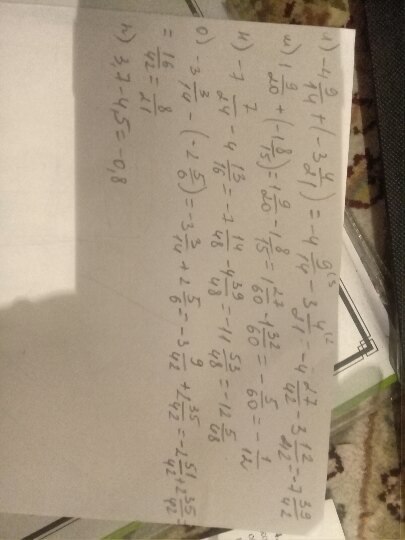 л) -4 9/14 + (-3 4/21) = -4 9/14 - 3 4/21 = -4 27/42 - 3 12/42 = -7 39/42
м) 1 9/20 + (-1 8/15) = 1 9/20 - 1 8/15 = 1 27/60 - 1 32/60 = - 5/60 = - 1/12
н) -7 7/24 - 4 13/16 = -7 14/48 - 4 39/48 = -11 53/48 = -12 5/48
о) -3 3/14 - (-2 5/6) = -3 3/14 + 2 5/6 = -3 9/42 + 2 35/42 = -2 51/42 + 2 35/42 =
= 16/42 = 8/21
п) 3,7 - 4,5 = -0,8